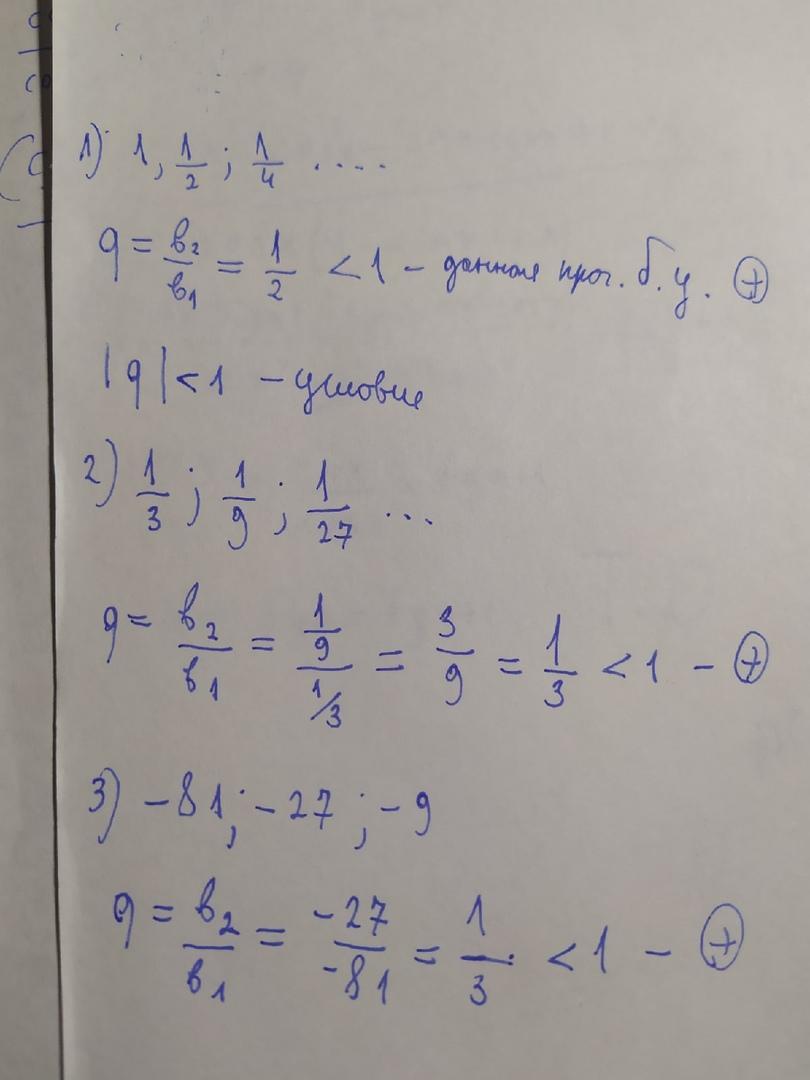 1) 1, 1/2 ; 1/4 ....
q = b₂/b₁ = 1/2 < 1 – данная прог. б. у. ⊕
|q| < 1 – условие
2) 1/3 ; 1/9 ; 1/27 ...
q = b₂/b₁ = (1/9)/(1/3) = 3/9 = 1/3 < 1 – ⊕
3) –81; –27 ; –9
q = b₂/b₁ = –27/–81 = 1/3 < 1 – ⊕